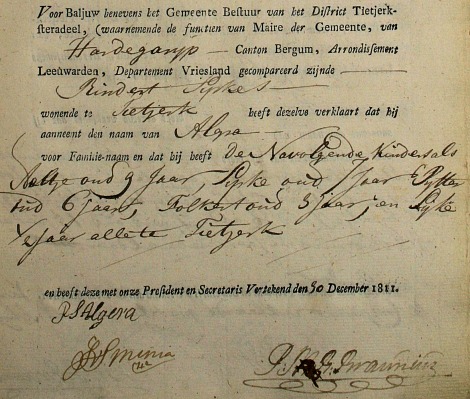 Voor Baljuw benevens het Gemeente Bestuur van het District Tietjerk-
steradeel, (waarnemende de functien van Maire der Gemeente, van
Hardegarijp — Canton Bergum, Arrondissement
Leeuwarden, Departement Vriesland gecompareerd zijnde —
Rindert Sijkes
wonende te Tietjerk heeft dezelve verklaart dat hij
aanneemt den naam van Algra —
voor Familie-naam en dat hij heeft De Navolgende Kinders als
Aaltje oud 9 Jaar, Sijke oud Jaar Pijtter
oud 6 jaar, Folkert oud 3 jaar, en Sijke
jaar alle te Tietjerk
en heeft deze met onze President en Secretaris Vertekend den 30 December 1811.
R S Algera